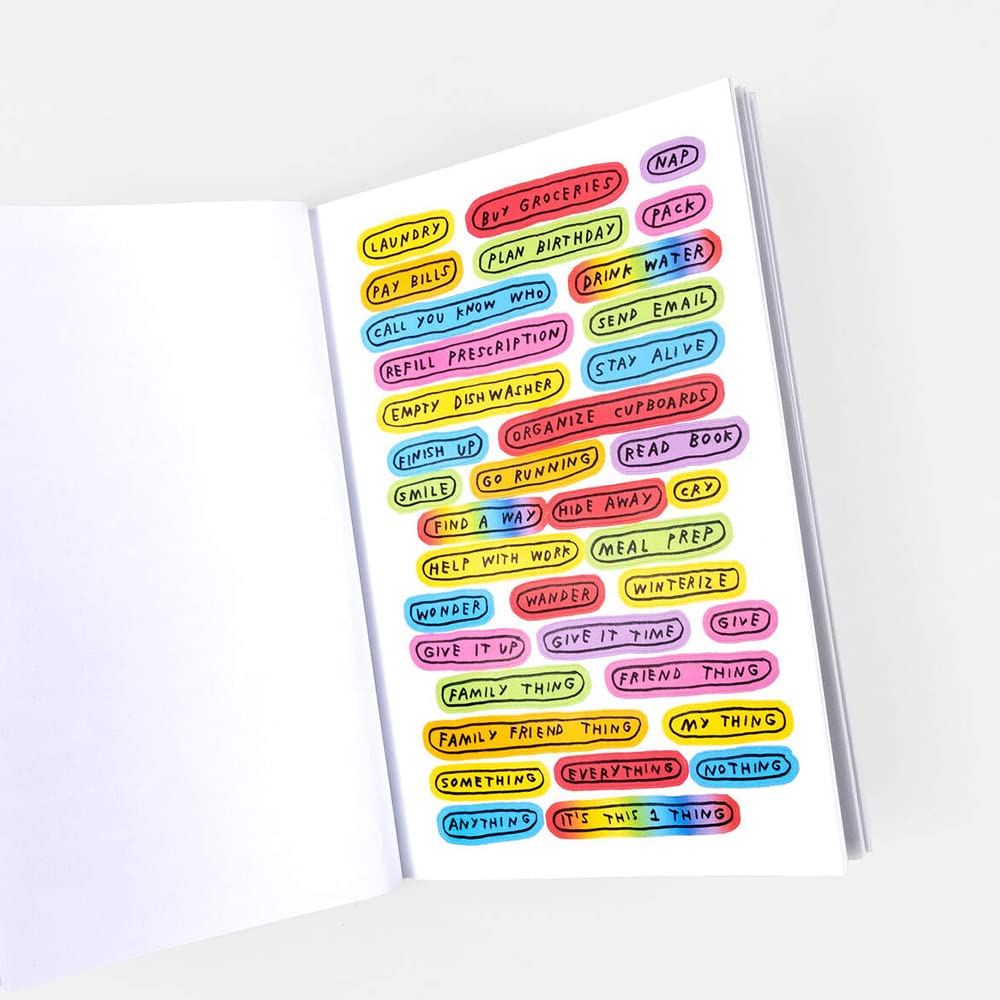 NAP
BUY GROCERIES
LAUNDRY
PACK
PLAN BIRTHDAY
PAY BILLS
DRINK WATER
CALL YOU KNOW WHO
SEND EMAIL
REFILL PRESCRIPTION
STAY ALIVE
EMPTY DISHWASHER
ORGANIZE CUPBOARDS
FINISH UP
READ BOOK
GO RUNNING
SMILE
CRY
FIND A WAY
HIDE AWAY
HELP WITH WORK
MEAL PREP
WONDER
WANDER
WINTERIZE
GIVE IT UP
GIVE IT TIME
GIVE
FAMILY THING
FRIEND THING
FAMILY FRIEND THING
MY THING
SOMETHING
EVERYTHING
NOTHING
ANYTHING
IT'S THIS 1 THING